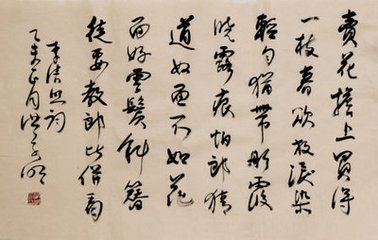 賣花擔上買得
一枝春欲放淚染
輕勻猶帶彤霞
曉露痕怕郎猜
道奴面不如花
面好雲鬢斜簪
徒要教郎比併看
李清照詞
乙未正月洪